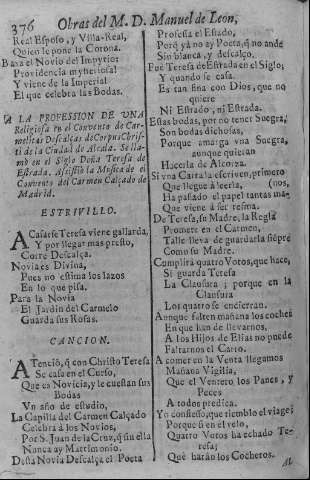 376 Obras del M. D. Manuel de Leon,
Real Esposo, y Villa-Real,
Quien le pone la Corona.
Baxa el Novio del Impyrio:
Providencia mysteriosa!
Y viene de la Imperial
El que celebra las Bodas.
A LA PROFESSION DE UNA
Religiosa en el Convento de Car-
melitas Descalças de Corpus Chris-
ti de la Ciudad de Alcalà. Se lla-
mò en el Siglo Doña Teresa de
Estrada. Assistiò la Musica de el
Convento del Carmen Calçado de
Madrid.
ESTRIVILLO.
A Casarse Teresa viene gallarda,
Y por llegar mas presto,
Corre Descalça.
Novia es Divina,
Pues no estima los lazos
En lo que pisa.
Para la Novia
El Jardin del Carmelo
Guarda sus Rosas.
CANCION.
ATenciò, q con Christo Teresa
Se casa en el Curso,
Que es Novicia, y le cuestan sus
Bodas
Vn año de estudio,
La Capilla del Carmen Calçado
Celebra à los Novios,
Por S. Juan de la Cruz, q sin ella
Nunca ay Matrimonio.
Desta Novia Descalça el Poeta
Professa el Estado,
Porq yà no ay Poeta, q no ande
Sin blanca, y descalço.
Fue Teresa de Estrada en el Siglo;
Y quando se casa.
Es tan fina con Dios, que no
quiere
Ni Estrado, ni Estrada.
Estas bodas, por no tener Suegra,
Son bodas dichosas,
Porque amarga vna Suegra,
aunque quieran
Hacerla de Alcorza.
Si vna Carta la escriven, primero
Que llegue à leerla, (nos,
Ha passado el papel tantas ma-
Que viene à ser resma.
De Teresa, su Madre, la Regla
Promete en el Carmen,
Talle lleva de guardarla siēpre
Como su Madre.
Cumplirà quatro Votos, que hace,
Si guarda Teresa
La Clausura; porque en la
Clausura
Los quatro se encierran.
Aunque falten mañana los coches
En que han de llevarnos,
A los Hijos de Elias no puede
Faltarnos el Carro.
A comer en la Venta llegamos
Mañana Vigilia,
Que el Ventero los Panes, y
Peces
A todos predica.
Yo confiesso, que tiemblo el viage;
Porque si en el velo,
Quatro Votos ha echado Te-
resa;
Què haràn los Cocheros.
Al